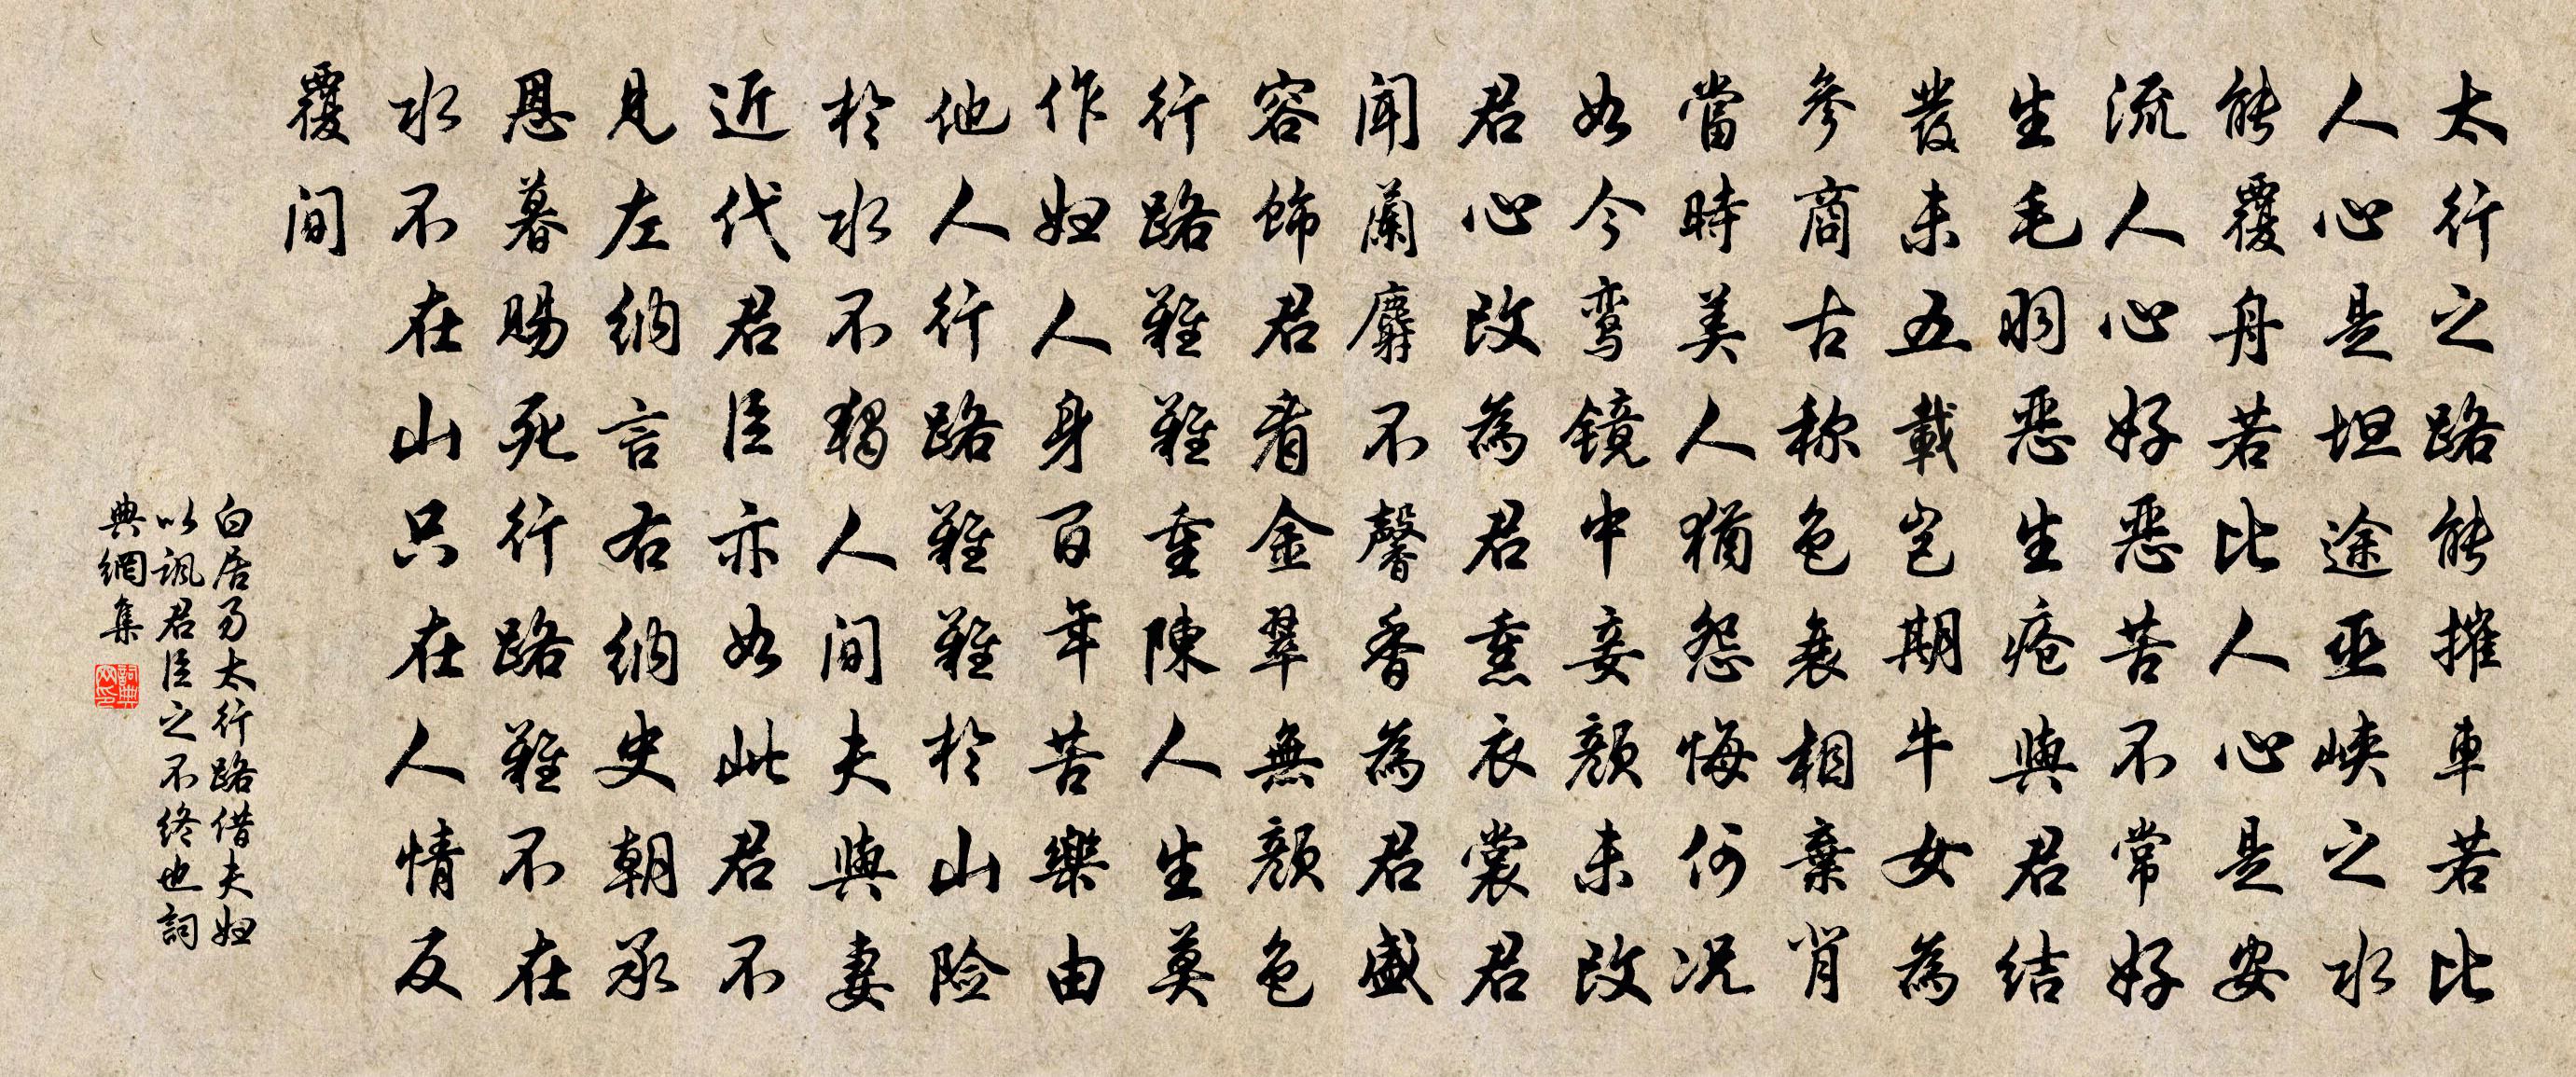 太行之路能摧車若比
人心是坦途巫峡之水
能覆舟若比人心是安
流人心好恶苦不常好
生毛羽恶生疮與君结
發未五載岂期牛女為
參商古称色衰相棄背
當時美人猶怨悔何况
如今鸾镜中妾颜未改
君心改為君熏衣裳君
闻蘭麝不馨香為君盛
容飾君看金翠無颜色
行路難難重陳人生莫
作妇人身百年苦樂由
他人行路難難於山险
於水不獨人间夫與妻
近代君臣亦如此君不
見左納言右納史朝承
恩暮賜死行路難不在
水不在山只在人情反
覆间
白居易太行路借夫妇
以諷君臣之不终也詞
典網集
詞典网印